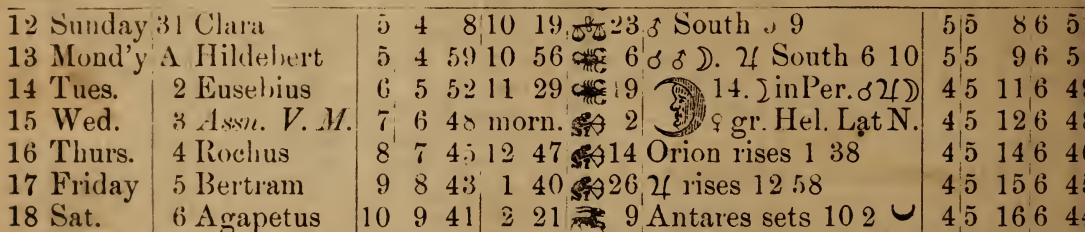 12 Sunday 31 Clara 5 4 8 10 19 ♎ 23 ♂ South 9 5 5 8 6 5
13 Mond'y A Hildebert 5 4 59 10 56 ♏ 6 ☌ ♂ ☽. ♃ South 6 10 5 5 9 6 5
14 Tues. 2 Eusebius 6 5 52 11 29 ♏ 19 14. ☽ in Per. ☌ ♃ ☽ 4 5 11 6
15 Wed. 3 Assn. V. M. 7 6 48 morn. ♐ 2 ♀ gr. Hel. Lat N. 4 5 12 6
16 Thurs. 4 Rochus 8 7 45 12 47 ♐ 14 Orion rises 1 38 4 5 14 6
17 Friday 5 Bertram 9 8 43 1 40 ♐ 26 ♃ rises 12 58 4 5 15 6
18 Sat. 6 Agapetus 10 9 41 2 21 ♑ 9 Antares sets 10 2 4 5 16 6